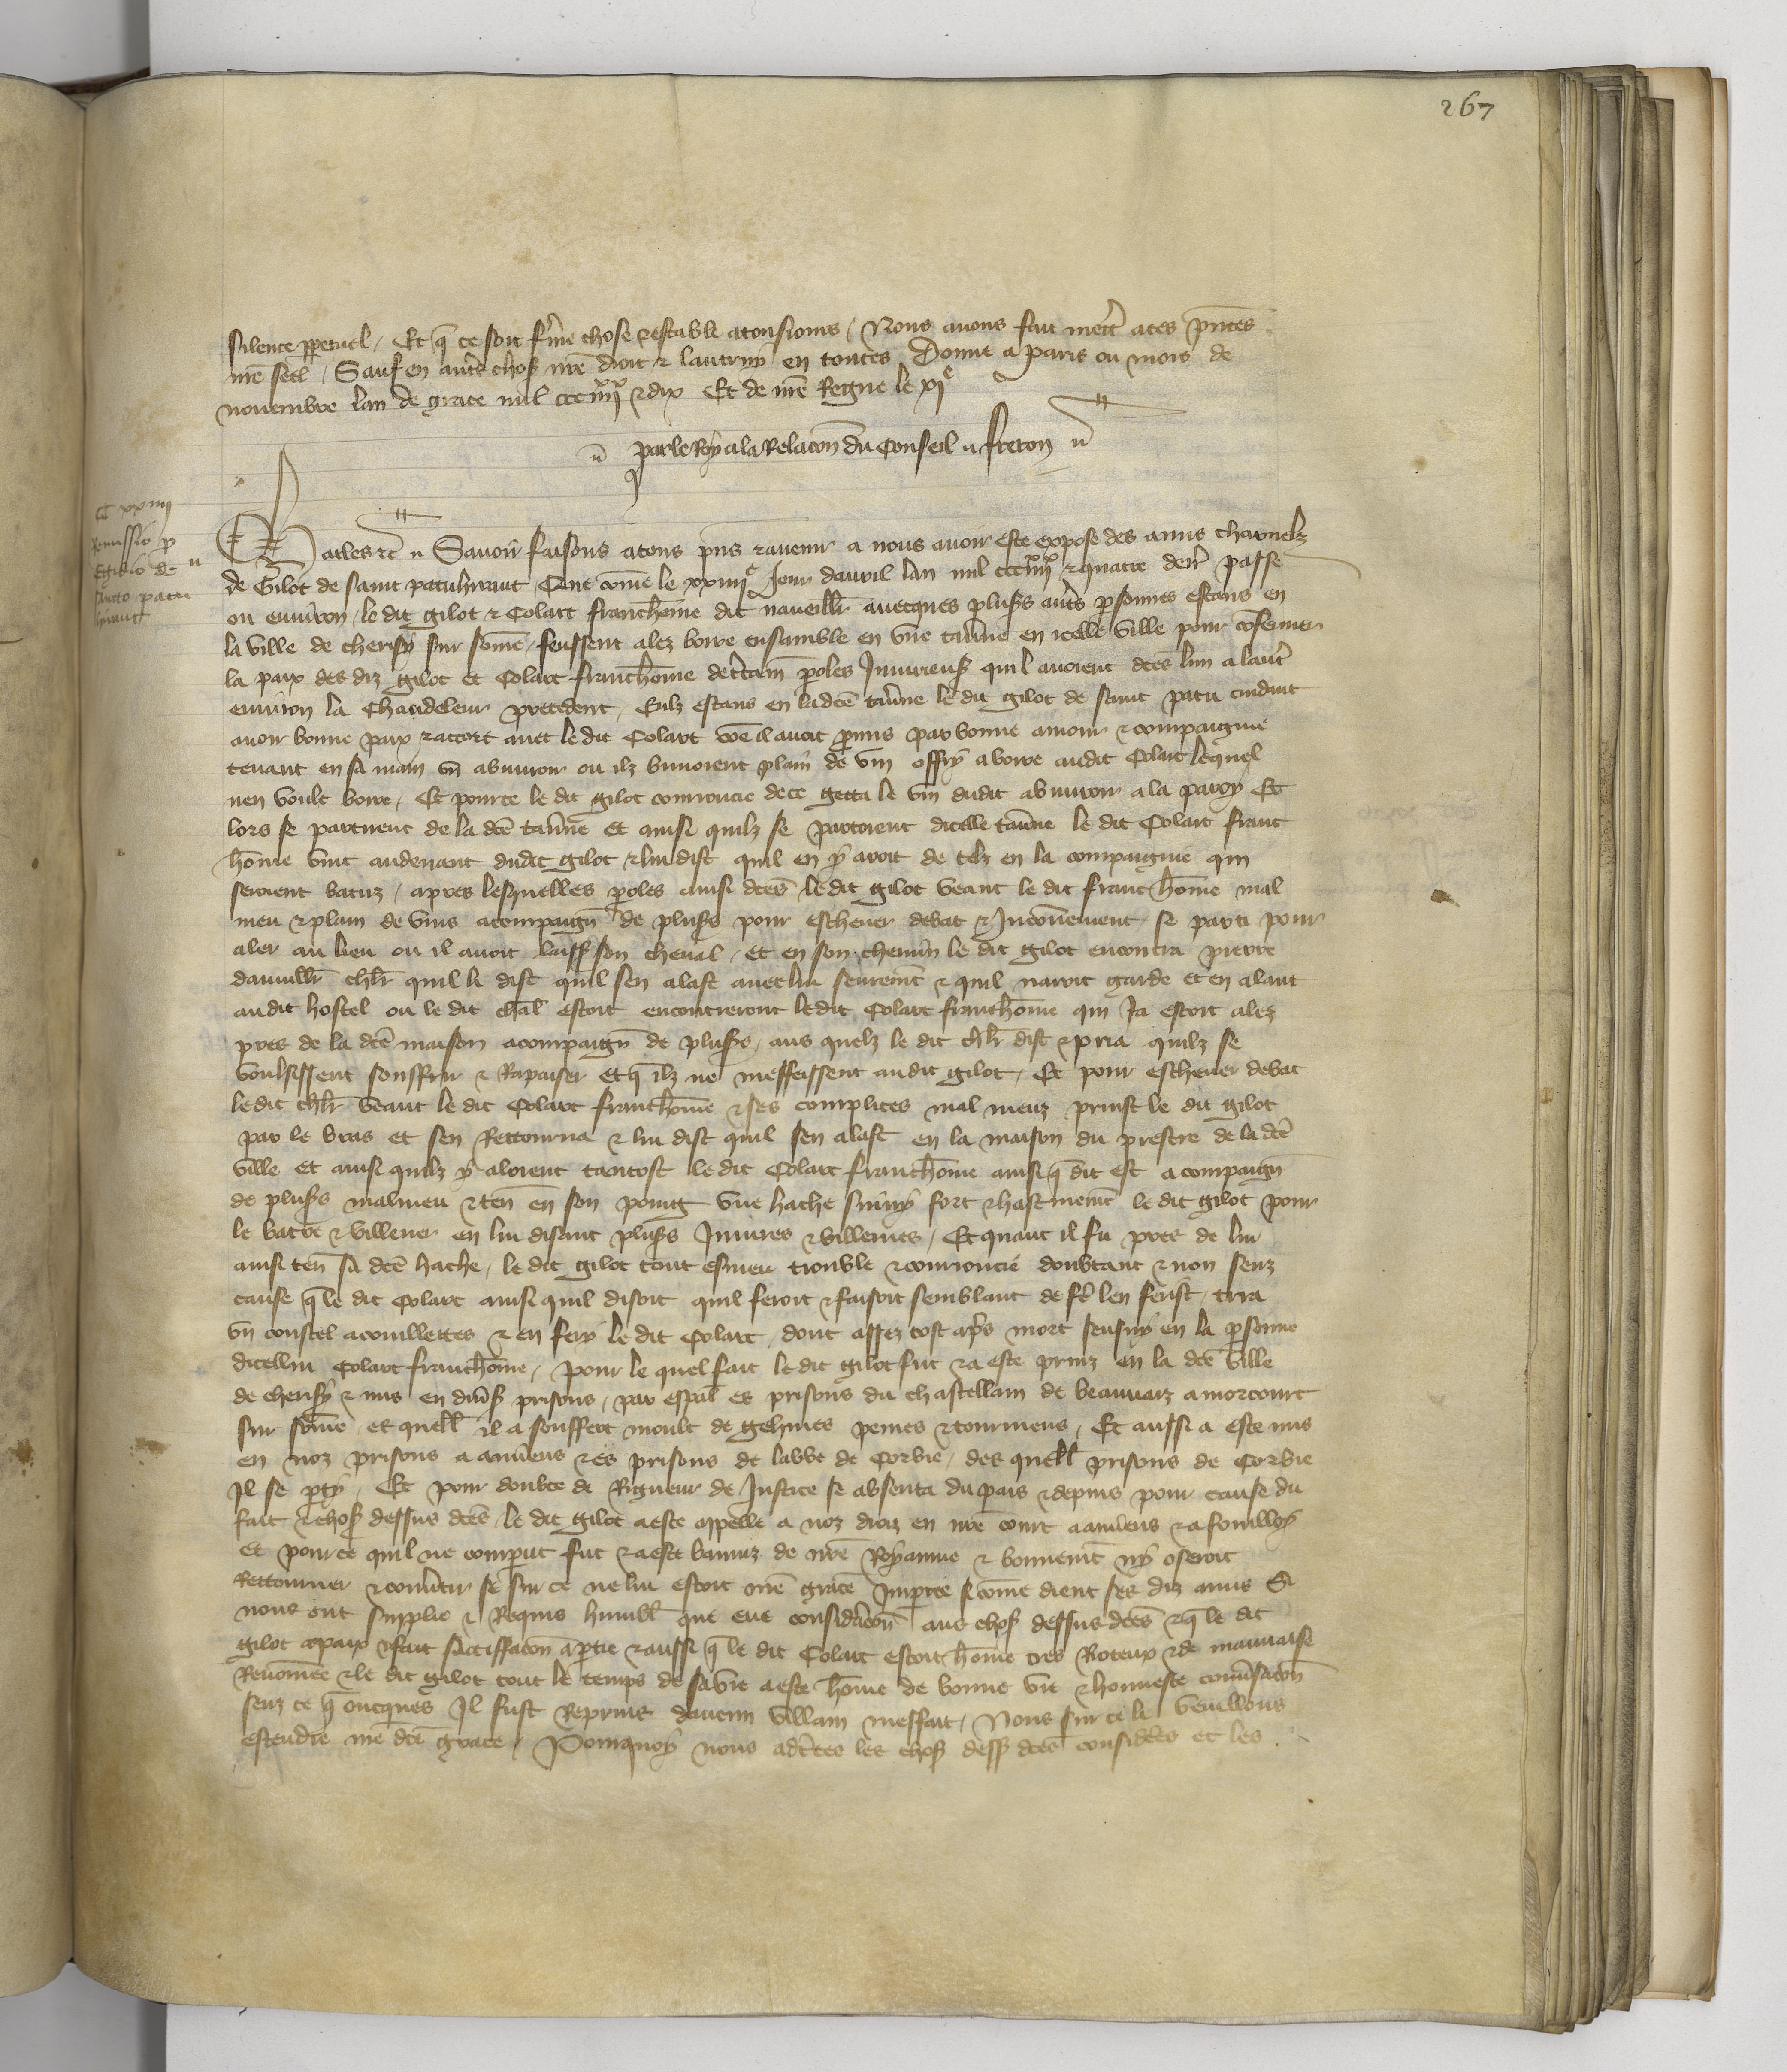 267
silence ppetuel / Et q̃ ce soit ferme chose & estable a tousiours / Nous auons fait mettr̃ a ces pñtes
nr̃e seel / Sauf en autr̃ chos̃ nr̃e droit & lautruy en toutes Donne a Paris ou mois de
nouembre lan de grace mil ccc iiii^xx & dix Et de nr̃e Regne le xi^e
Par le Roy a la Relacon du Conseil freron
CC xxiiii
Remissio p
Egidio de
sancto patu
Charles &c Sauoir faisons a tous pñs & auenir a nous auoir este expose des amis charnelz
de Gilot de saint Co͂me le xxiiii^e Jour dauril lan mil ccc iiii^xx & quatre der̃ passe
ou enuiron / le dit gilot & Colart franchõme dit auecques plus̃s autr̃s psonnes estans en
la ville de cherisy sur sõme / feussent alez boire ensamble en vne tau̾ne en icelle ville pour cõfermer
la paix des diz gilot et Colart franchõme de certaiñ poles Iniurieuß quil auoient dc̃es lun a lautr̃
enuiron la Chandeleur precedent / Eulz estans en ladc̃e tau̾ne le dit gilot de saint patu cuidant
auoir bonne paix & accort auec le dit Colart cõe il auoit pmis par bonne amour & compaignie
tenant en sa main vñ abuuroir ou ilz buuoient plain de vin offry a boire audit Colart lequel
nen voult boire / Et pource le dit gilot courroucie de ce getta le vin dudit abuuroir a la paroy Et
lors se partirent de la dc̃e tau̾ne Et ainsi quilz se partoient dicelle tau̾ne le dit Colart franc
hõme vint audeuant dudit gilot & lui dist quil en y auoit de telz en la compaignie qui
seroient batuz / apres lesquelles poles ainsi dc̃es le dit gilot veant le dit franc hõme mal
meu & plain de vins acompaignẽ de plus̃s pour escheuer debat & Inconuenient se parti pour
aler au lieu ou il auoit laiss̃ son cheual / et en son chemin le dit gilot encontra pierre
chl̃r quil li dist quil sen alast auec lui seuremt̃ & quil nauroit garde et en alant
audit hostel ou le dit chal̃ estoit encontreront ledit Colart franchõme qui Ja estoit alez
pres de la dc̃e maison acompaignẽ de plus̃s / aus quelz le dit chl̃r dist & pria quilz se
voulsissent souffrir & Rapaiser et q̃ ilz ne meffeissent audit gilot / Et pour escheuer debat
ledit chl̃r veant le dit Colart franchõme & ses complices mal meuz prinst le dit gilot
par le bras et sen Rettourna & lui dist quil sen alast en la maison du prestre de la dc̃e
ville et ainsi quilz y aloient tantost le dit Colart franchõme ainsi q̃ dit est acompaignẽ
de plus̃s malmeu & teñ en son poing vne hache suiuy fort & hastiuemt̃ le dit gilot pour
le batre & villener en lui disant plus̃s Iniures & villenies / Et quant il fu pres de lui
ainsi teñ sa dc̃e hache / le dit gilot tout esmeu trouble & courroucie doubtant & non senz
cause q̃ le dit Colart ainsi quil disoit quil feroit & faisoit semblant de fer̃ len ferist / tira
vñ coustel a couillettes & en fery le dit Colart / dont assez tost apr̃s mort sensuy en la psonne
dicellui Colart franchõme / pour le quel fait le dit gilot fut & a este prinz en la dc̃e ville
de cherisy & mis en diu̾s prisons / par especal̃ es prisons du chastellain de beauuaiz a morcourt
sur sõme es quell̃ il a souffert moult de gehines peines & tourmens / Et aussi a este mis
en noz prisons a amiens & es prisons de labbe de Corbie / des quell̃ prisons de Corbie
Il se pty / Et pour doubte de Rigueur de Justice se absenta du pais & depuis pour cause du
fait & chos̃ dessus dc̃es le dit gilot a este appelle a noz droiz en nr̃e court a amiens & a fouilloy
et pource quil ne comparut fut & a este banniz de nr̃e Royaume & bonnemt̃ ny oseroit
Rettourner & conu̾tir se sur ce ne lui estoit nr̃e grace Impartie si cõme dient ses diz amis Si
nous ont supplie & Requis humbl̃ que eue consideracon aus chos̃ dessus dc̃es & q̃ le dit
gilot a paix & fait satiffacon a ptie & aussi q̃ le dit Colart estoit hõme tres Roteux & de mauuaise
Renõmee & le dit gilot tout le temps de sa vie a este hõme de bonne vie & honneste conu̾sacon
senz ce q̃ oncques Il fust Reprins daucun villain meffait / Nous sur ce li veuillons
estendre nr̃e dc̃e grace / Pourquoy nous adc̃tes les chos̃ dess̃ dc̃es considerees et les